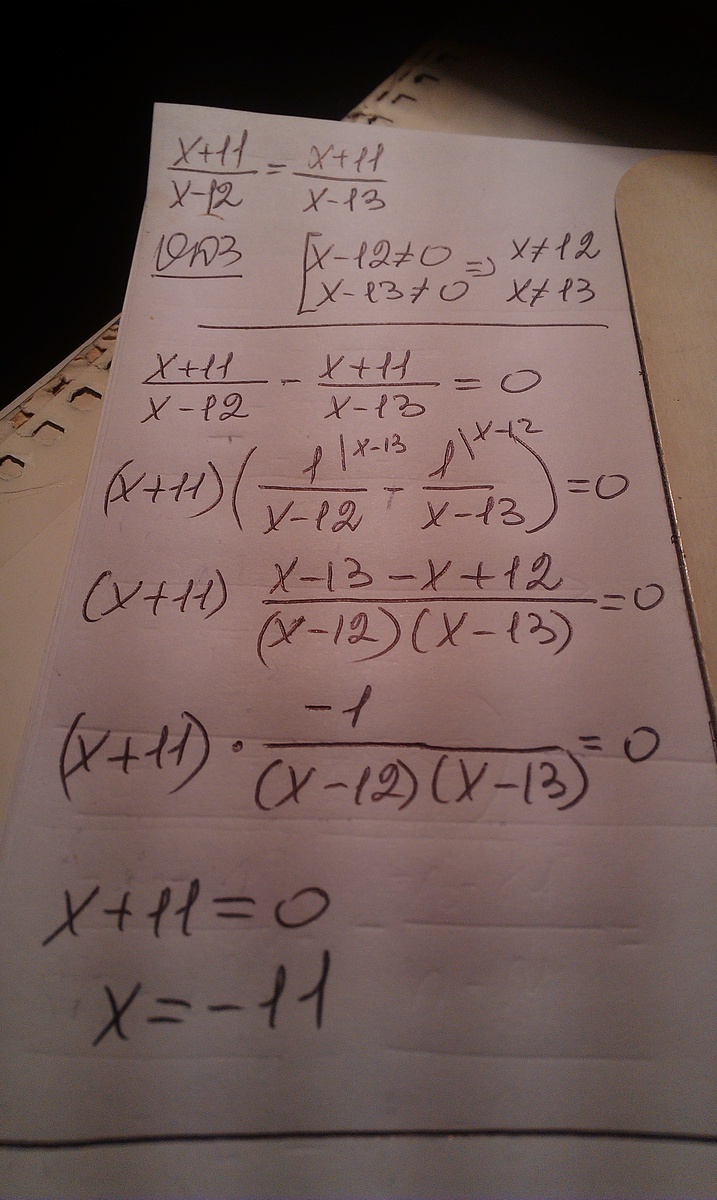 x+11/x-12 = x+11/x-13
ОДЗ [x-12≠0 => x≠12
x-13≠0 x≠13
x+11/x-12 - x+11/x-13 = 0
(x+11)(1\x-13/x-12 - 1\x-12/x-13) = 0
(x+11) x-13-x+12/(x-12)(x-13) = 0
(x+11) · -1/(x-12)(x-13) = 0
x+11=0
x=-11